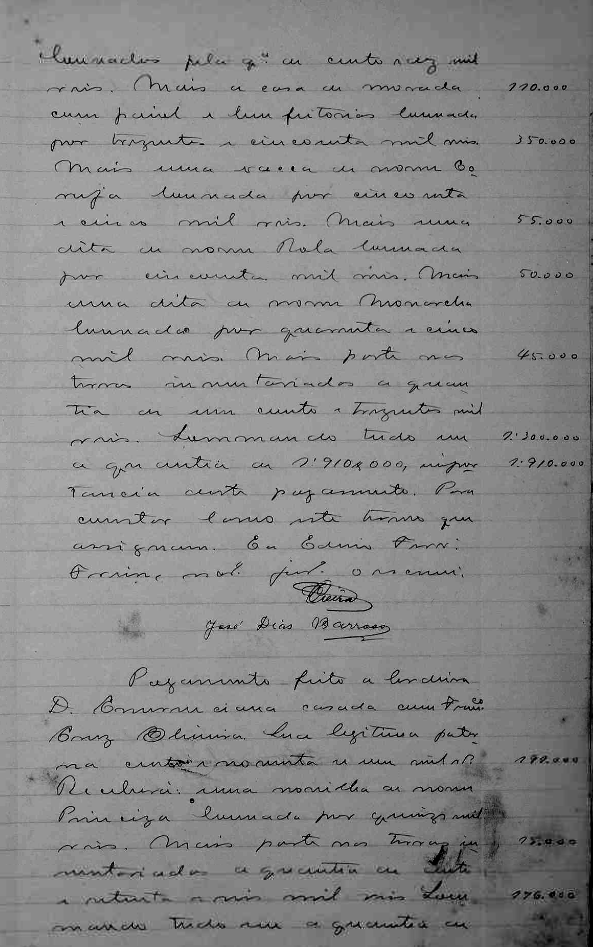 pela q.ª de cento e dez mil
reis. Mais a casa de morada 110.000
com painel e bemfeitorias louvada
por trezentos e cincoenta mil reis. 350.000
Mais uma vacca de nome Co
ruja louvada por cincoenta
e cinco mil reis. Mais uma 55.000
dita de nome Rola louvada
por cincoenta mil reis. Mais 50.000
uma dita de nome Monarcha
louvada por quarenta e cinco
mil reis. Mais parte nas 45.000
terras inventariadas a quan
tia de um conto e trezentos mil
reis. Sommando tudo em 1:300.000
a quantia de 1:910$000, impor 1:910.000
tancia deste pagamento. Para
constar lavro este termo que
assignam. Eu
o escrevi.
Vieira
José Dias Barroso
Pagamento feito a herdeira
D. casada com Fran.co
Cruz Oliveira. Sua legitima pater
na cento e noventa e um mil rs. 191.000
Receberá: uma novilha de nome
Princeza louvada por quinze mil
reis. Mais parte nas terras in 15.000
ventariadas a quantia de cento
e setenta e seis mil reis Som 176.000
mando tudo em a quantia de